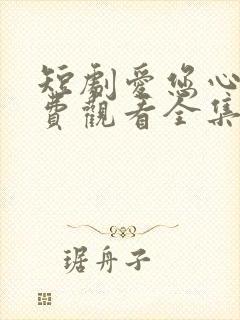 短劇愛您心
費觀看全集
琚舟子